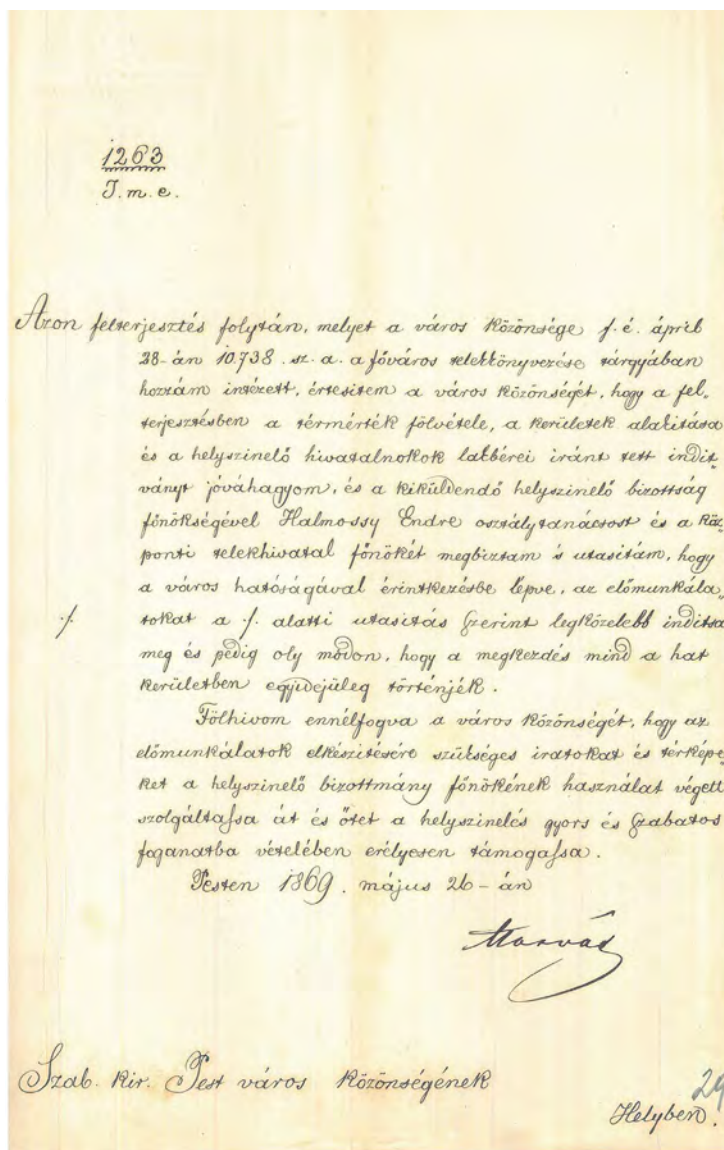 1263
I. m. e.
Azon felterjesztés folytán, melyet a város közönsége f. é. ápril
28-án 10.738. sz. a. a főváros telekkönyvezése tárgyában
hozzám intézett, értesitem a város közönségét, hogy a fel„
terjesztésben a térmérték fölvétele, a kerületek alakitása
és a helyszinelő hivatalnokok lakbérei iránt tett indit„
ványt jóváhagyom, és a kiküldendő helyszinelő bizottság
főnökségével Halmossy Endre osztálytanácsost és a köz„
ponti telekhivatal főnökét megbiztam és utasitám, hogy
a város hatóságával érintkezésbe lépve, az előmunkála„
·/. tokat a ·/. alatti utasitás szerint legközelebb inditsa
meg és pedig oly módon, hogy a megkezdés mind a hat
kerületben egyidejüleg történjék.
Fölhivom ennélfogva a város közönségét, hogy az
előmunkálatok elkészitésére szükséges iratokat és térképe„
ket a helyszinelő bizottmány főnökének használat végett
szolgáltassa át és őtet a helyszinelés gyors és szabatos
foganatba vételében erélyesen támogassa.
Pesten 1869. május 26-án
Horvát
Szab. kir. Pest város közönségének
29
Helyben.